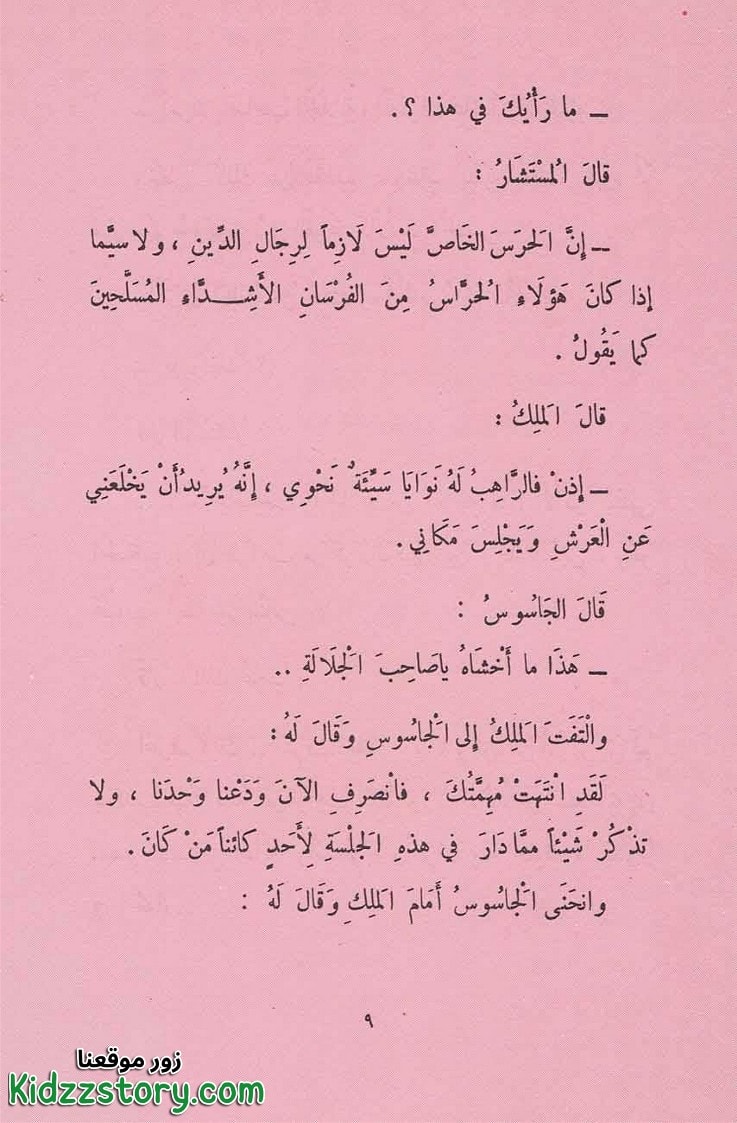 ــ ما رَأْيُكَ في هذا ؟ .
قالَ الْمُسْتَشَارُ :
ــ إِنَّ الَحرَسَ الخَاصَّ لَيْسَ لَازِماً لِرِجَالِ الدِّينِ ، ولا سيَّما
إذا كانَ هَؤلَاءِ الُحرَّاسُ مِنَ الفُرْسَانِ الأَشِدَّاءِ المُسَلَّحِينَ
كما يَقُولُ .
قالَ الَملِكُ :
ــ إِذنْ فالرَّاهِبُ لَهُ نَوَايَا سَيِّئَةٌ نَحْوِي ، إِنَّهُ يُرِيدُ أَنْ يَخْلَعَنِي
عَنِ الْعَرْشِ وَيَجْلِسَ مَكَانِي .
قَالَ الجَاسُوسُ :
ــ هَذَا ما أَخْشَاهُ ياصَاحِبَ الْجَلَالَةِ ..
والْتَفَتَ الَملِكُ إلى الْجاسُوسِ وَقَالَ لَهُ :
لَقَدِ انْتَهَتْ مُهِمَّتُكَ ، فانْصَرِفِ الآنَ وَدَعْنا وَحْدَنا ، ولا
تذْكُرْ شَيْئاً ممَّا دَارَ في هذهِ الَجلْسَةِ لِأَحَدٍ كائناً مَنْ كَانَ .
وانحَنَى الْجاسُوسُ أَمَامَ الَملِكِ وَقَالَ لَهُ :
٩
زور موقعنا
Kidzzstory.com